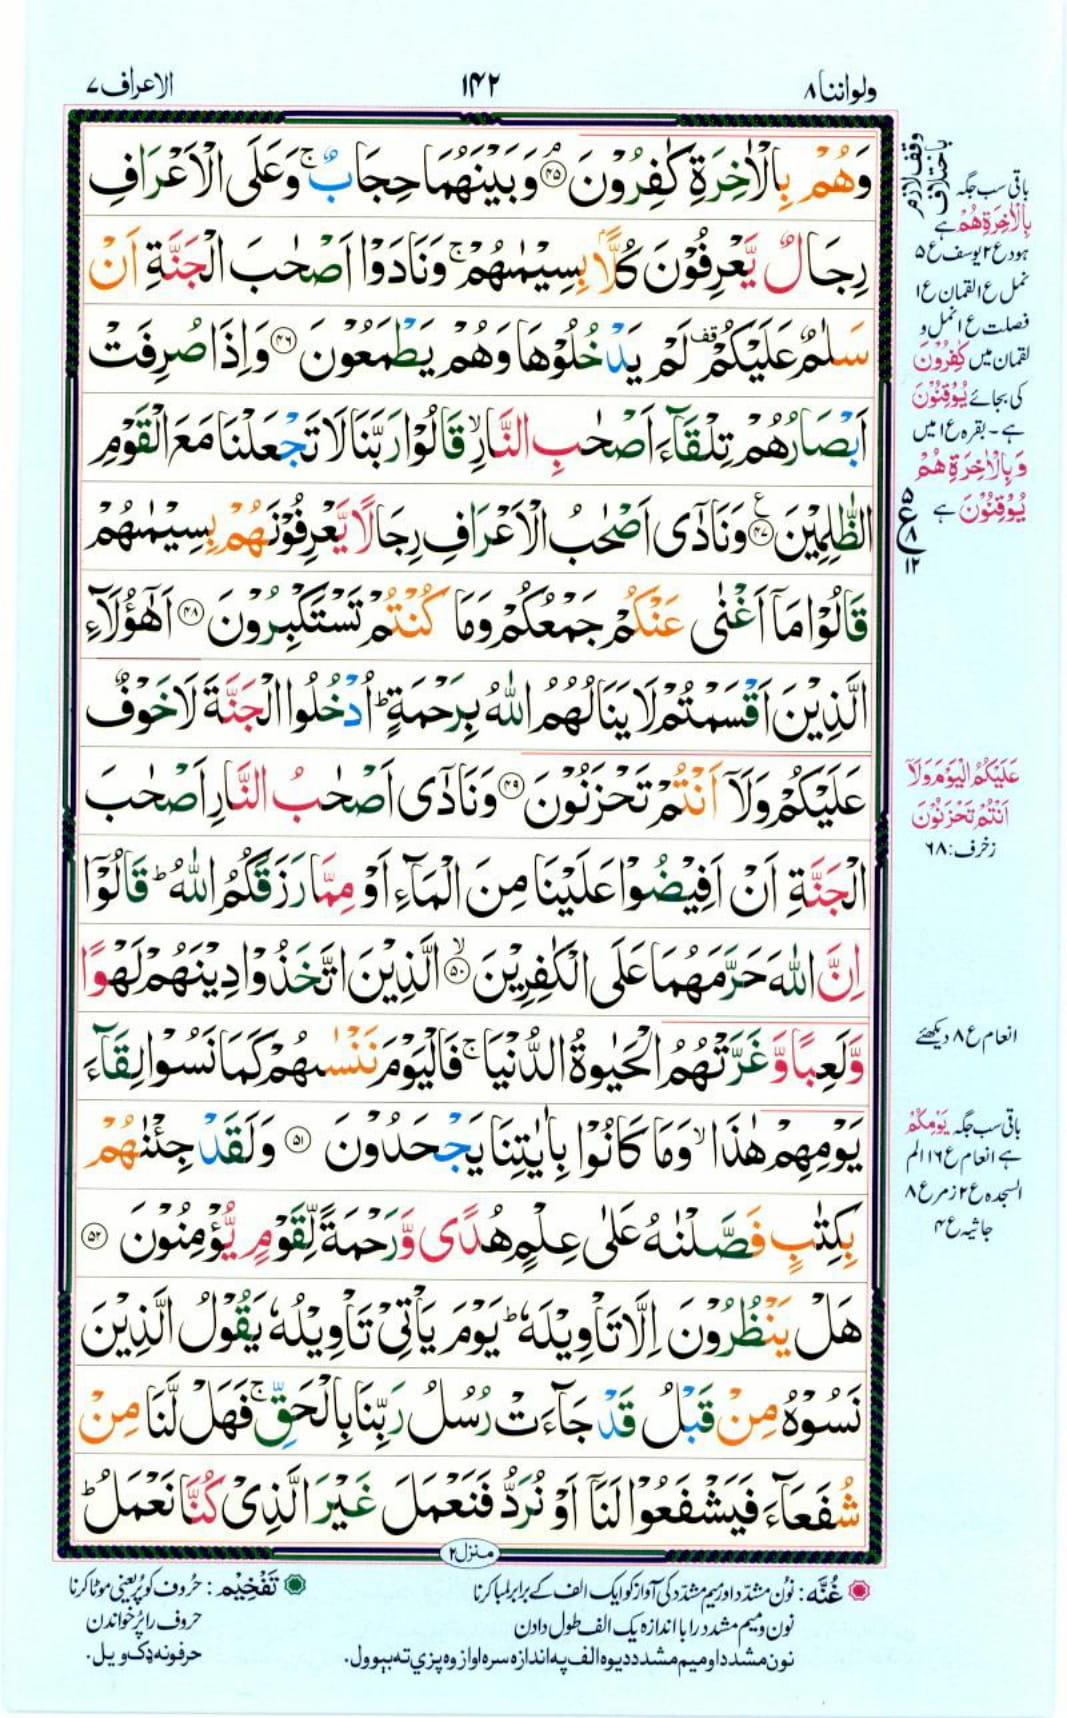 ولواننا ۸
۱۴۲
الاعراف ۷
وَهُمْ بِالْاٰخِرَةِ كٰفِرُوْنَ ۘ‏﴿۴۵﴾ وَبَيْنَهُمَا حِجَابٌ ۚ وَعَلَى الْاَعْرَافِ
رِجَالٌ يَّعْرِفُوْنَ كُلًّاۢ بِسِيْمٰىهُمْ ۚ وَنَادَوْا اَصْحٰبَ الْجَنَّةِ اَنْ
سَلٰمٌ عَلَيْكُمْ ۟ قف لَمْ يَدْخُلُوْهَا وَهُمْ يَطْمَعُوْنَ ﴿۴۶﴾ وَاِذَا صُرِفَتْ
اَبْصَارُهُمْ تِلْقَآءَ اَصْحٰبِ النَّارِ ۙ قَالُوْا رَبَّنَا لَا تَجْعَلْنَا مَعَ الْقَوْمِ
الظّٰلِمِيْنَ ﴿۴۷﴾ ع وَنَادٰۤى اَصْحٰبُ الْاَعْرَافِ رِجَالًا يَّعْرِفُوْنَهُمْ بِسِيْمٰىهُمْ
قَالُوْا مَاۤ اَغْنٰى عَنْكُمْ جَمْعُكُمْ وَمَا كُنْتُمْ تَسْتَكْبِرُوْنَ ﴿۴۸﴾ اَهٰۤؤُلَآءِ
الَّذِيْنَ اَقْسَمْتُمْ لَا يَنَالُهُمُ اللّٰهُ بِرَحْمَةٍ ؕ اُدْخُلُوا الْجَنَّةَ لَا خَوْفٌ
عَلَيْكُمْ وَلَاۤ اَنْتُمْ تَحْزَنُوْنَ ﴿۴۹﴾ وَنَادٰۤى اَصْحٰبُ النَّارِ اَصْحٰبَ
الْجَنَّةِ اَنْ اَفِيْضُوْا عَلَيْنَا مِنَ الْمَآءِ اَوْ مِمَّا رَزَقَكُمُ اللّٰهُ ؕ قَالُوْۤا
اِنَّ اللّٰهَ حَرَّمَهُمَا عَلَى الْكٰفِرِيْنَ ۙ‏﴿۵۰﴾ الَّذِيْنَ اتَّخَذُوْا دِيْنَهُمْ لَهْوًا
وَّلَعِبًا وَّغَرَّتْهُمُ الْحَيٰوةُ الدُّنْيَا ۚ فَالْيَوْمَ نَنْسٰىهُمْ كَمَا نَسُوْا لِقَآءَ
يَوْمِهِمْ هٰذَا ۙ وَمَا كَانُوْا بِاٰيٰتِنَا يَجْحَدُوْنَ ﴿۵۱﴾ وَلَقَدْ جِئْنٰهُمْ
بِكِتٰبٍ فَصَّلْنٰهُ عَلٰى عِلْمٍ هُدًى وَّرَحْمَةً لِّقَوْمٍ يُّؤْمِنُوْنَ ﴿۵۲﴾
هَلْ يَنْظُرُوْنَ اِلَّا تَاْوِيْلَهٗ ؕ يَوْمَ يَاْتِيْ تَاْوِيْلُهٗ يَقُوْلُ الَّذِيْنَ
نَسُوْهُ مِنْ قَبْلُ قَدْ جَآءَتْ رُسُلُ رَبِّنَا بِالْحَقِّ ۚ فَهَلْ لَّنَا مِنْ
شُفَعَآءَ فَيَشْفَعُوْا لَنَاۤ اَوْ نُرَدُّ فَنَعْمَلَ غَيْرَ الَّذِيْ كُنَّا نَعْمَلُ ؕ
منزل ۲
وقف لازم
باختلاف
باقی سب جگہ
بِالْاٰخِرَةِ هُمْ ہے
ہود ع۲ یوسف ع۵
نمل ع۱ لقمان ع۱
فصلت ع۱ نمل و
لقمان میں كٰفِرُوْنَ
کی بجائے يُوْقِنُوْنَ
ہے۔ بقرہ ع۱ میں
وَبِالْاٰخِرَةِ هُمْ
يُوْقِنُوْنَ ہے
۵
ع
۸
۱۲
عَلَيْكُمُ الْيَوْمَ وَلَاۤ
اَنْتُمْ تَحْزَنُوْنَ
زخرف: ۶۸
انعام ع۸ دیکھئے
باقی سب جگہ يَوْمِكُمْ
ہے انعام ع۱۶ الم
السجدہ ع۲ زمر ع۸
جاثیہ ع۴
غُنَّه: نُون مشدّد اور میم مشدّد کی آواز کو ایک الف کے برابر لمبا کرنا
نون و میم مشدد را با اندازه یک الف طول دادن
نون مشدد او میم مشدد دیوه الف په اندازه سره اواز وه پزي ته بېوول.
تَفْخِيْم: حُروف کو پُر یعنی موٹا کرنا
حروف را پُر خواندن
حرفونه ډک ویل.